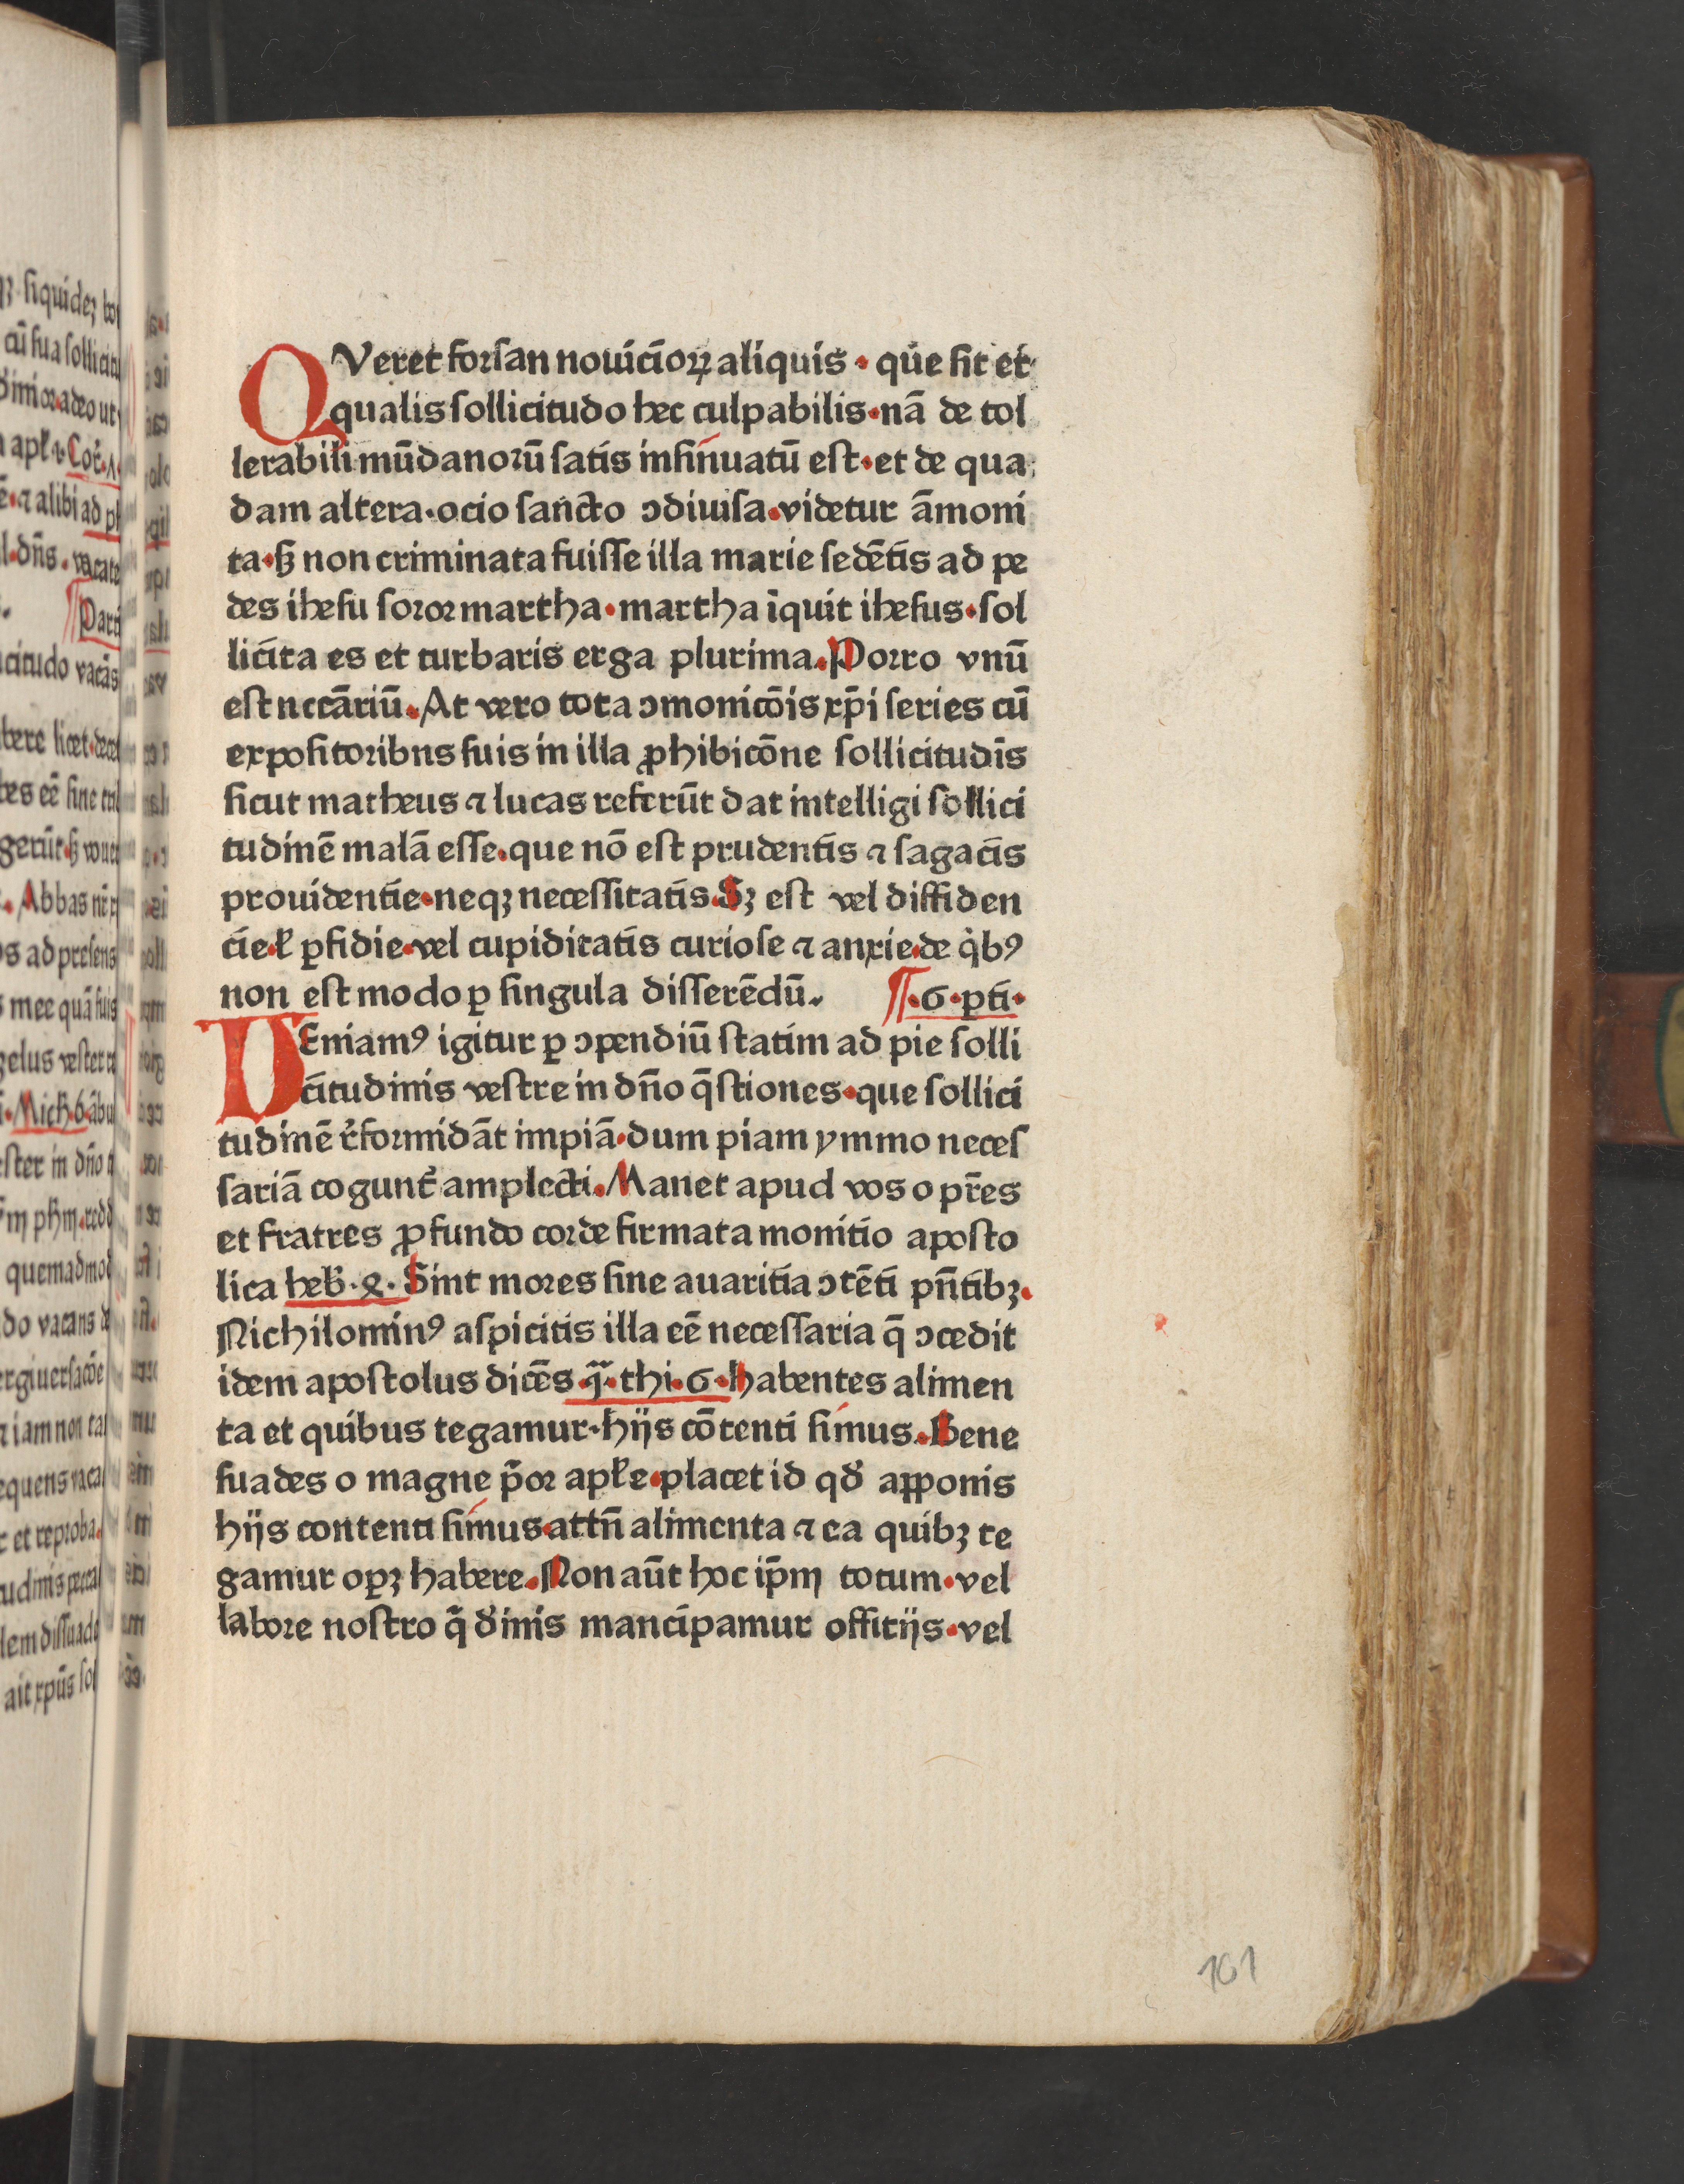 QVeret forsan nouicioꝝ aliquis · que sit et
qualis sollicitudo hec culpabilis·nā de tol
lerabili mūdanorū satis insinuatū est·et de qua
dam altera·ocio sancto ↄdiuisa·videtur āmoni
ta·ſꝫ non criminata fuisse illa marie sedētis ad pe
des ihesu soror martha·martha īquit ihesus·sol
licita es et turbaris erga plurima.Porro vnū
est nccāriū.At vero tota ↄmonicōis xp̄i series cū
expositoribns suis in illa ꝓhibicōne sollicitudīs
sicut matheus ⁊ lucas referūt dat intelligi sollici
tudinē malā esse·que nō est prudentis ⁊ sagacis
prouidentie·neqꝫ necessitatis.Sꝫ est vel diffiden
cie·ł ꝑfidie·vel cupiditatis curiose ⁊ anxie·de qͥbꝰ
non est modo ꝑ singula disserēdū. ¶·6·pti·
VEniamꝰ igitur ꝑ ↄpendiū statim ad pie solli
citudinis vestre in dn̄o q̄stiones·que sollici
tudinē r̓formidāt impiā·dum piam ymmo neces
sariā cogunt᷑ amplecti.Manet apud vos o pr̄es
et fratres ꝓfundo corde firmata monitio aposto
lica heb̓.·ꝝ· Sint mores sine auaritia ↄtēti pn̄tibꝫ.
Nichilominꝰ aspicitis illa eē necessaria q̄ ↄcedit
idem apostolus dicēs·q̄·thi·6·habentes alimen
ta et quibus tegamur·hijs cōtenti simus.Bene
suades o magne p̄or apłe·placet id qđ apponis
hijs contenti simus·attn̄ alimenta ⁊ ea quibꝫ te
gamur opꝫ habere.Non aūt hoc ip̄m totum·vel
labore nostro q̄ đinis mancipamur offitijs·vel
161